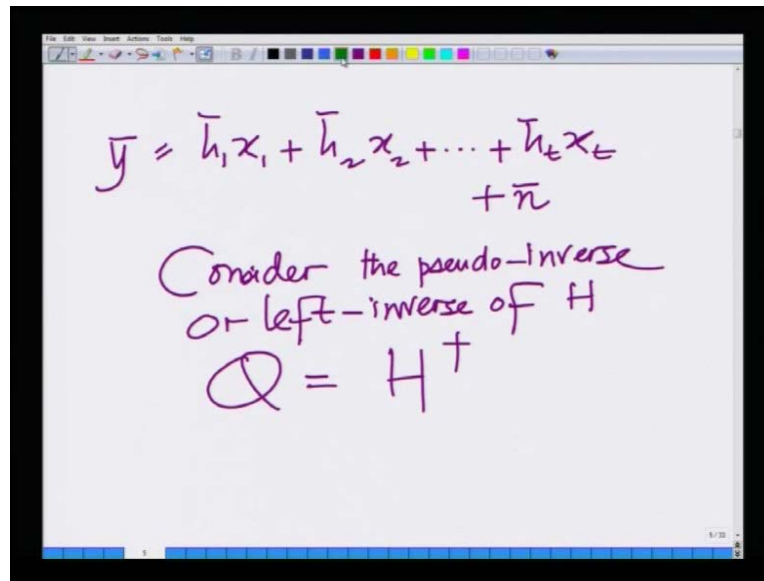 File Edit View Insert Actions Tools Help
B I
ȳ = h̄₁x₁ + h̄₂x₂ + ⋯ + h̄ₜxₜ
+ n̄
Consider the pseudo-inverse
or left-inverse of H
Q = H†
5/33
5